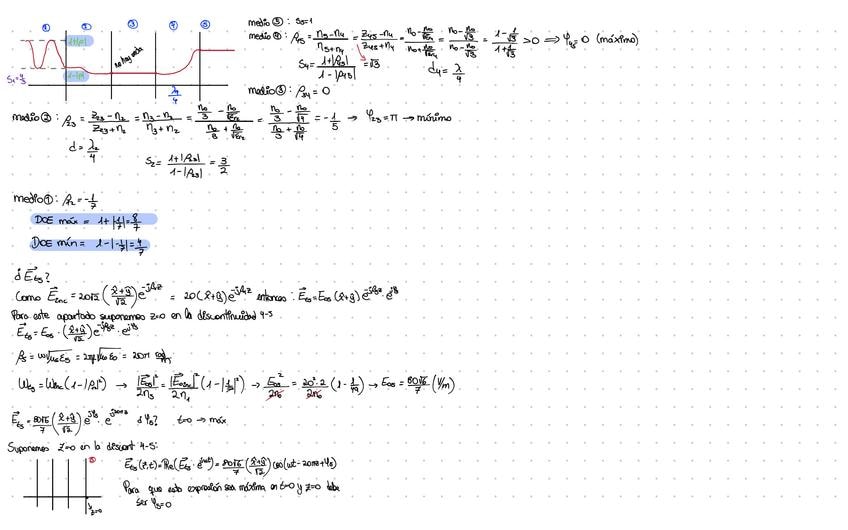 ① ② ③ ④ ⑤
1+|ρ|
1-|ρ|
no hay onda
S₁=4/3
λ/4
medio ⑤: S₅=1
medio ④: ρ₄₅ = (η₅-η₄)/(η₅+η₄) = (Z₄₅-η₄)/(Z₄₅+η₄) = (η₀-η₀/√εr₄)/(η₀+η₀/√εr₄) = (η₀-η₀/√3)/(η₀-η₀/√3) = (1-1/√3)/(1+1/√3) >0 ⟹ φ₄₅=0 (máximo)
S₄ = (1+|ρ₄₅|)/(1-|ρ₄₅|) = √3
d₄ = λ/4
medio ③: ρ₃₄ = 0
medio ②: ρ₂₃ = (Z₂₃-η₂)/(Z₂₃+η₂) = (η₃-η₂)/(η₃+η₂) = (η₀/3 - η₀/√εr₂)/(η₀/3 + η₀/√εr₂) = (η₀/3 - η₀/√4)/(η₀/3 + η₀/√4) = -1/5 → φ₂₃=π → mínimo
d = λ₂/4
S₂ = (1+|ρ₂₃|)/(1-|ρ₂₃|) = 3/2
medio ①: ρ₁₂ = -1/7
DOE máx = 1+|1/7| = 8/7
DOE mín = 1-|-1/7| = 4/7
¿E⃗t₅?
Como E⃗inc = 20√2 ((x̂+ŷ)/√2) e^-jβ₁z = 20(x̂+ŷ)e^-jβ₁z entonces: E⃗t₅ = E₀₅(x̂+ŷ)e^-jβ₅z · e^jφ₅
Para este apartado suponemos z=0 en la discontinuidad 4-5
E⃗t₅ = E₀₅ · ((x̂+ŷ)/√2) e^-jβ₅z · e^jφ₅
β₅ = ω√μ₅ε₅ = 2πf√μ₀ε₀ = 20π rad/m
Wt₅ = Winc(1-|ρ₁₂|²) → |E₀₅|²/2η₅ = |E⃗₀inc|²/2η₁ (1-|1/7|²) → E₀₅²/2η₀ = 20²·2/2η₀ (1-1/49) → E₀₅ = 80√6/7 (V/m)
E⃗t₅ = 80√6/7 ((x̂+ŷ)/√2) e^jφ₅ · e^-j20πz ¿φ₅? t=0 → máx
Suponemos z=0 en la discont 4-5:
⑤
z=0
E⃗t₅(z,t) = Re(E⃗t₅ · e^jωt) = 80√6/7 ((x̂+ŷ)/√2) cos(ωt-20πz+φ₅)
Para que esta expresión sea máxima en t=0 y z=0 debe
ser φ₅=0